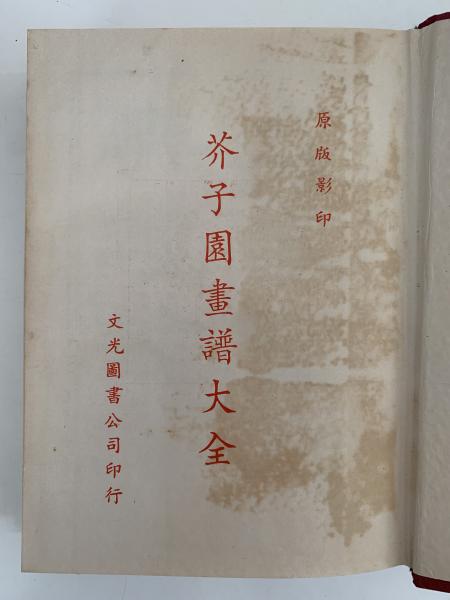 原版影印
芥子園畫譜大全
文光圖書公司印行